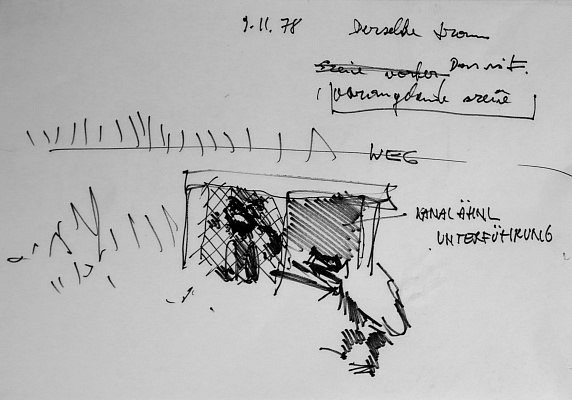 9.11.78 Derselbe Traum
Szene vorher
vorangehende Szene
WEG
KANALÄHNL
UNTERFÜHRUNG